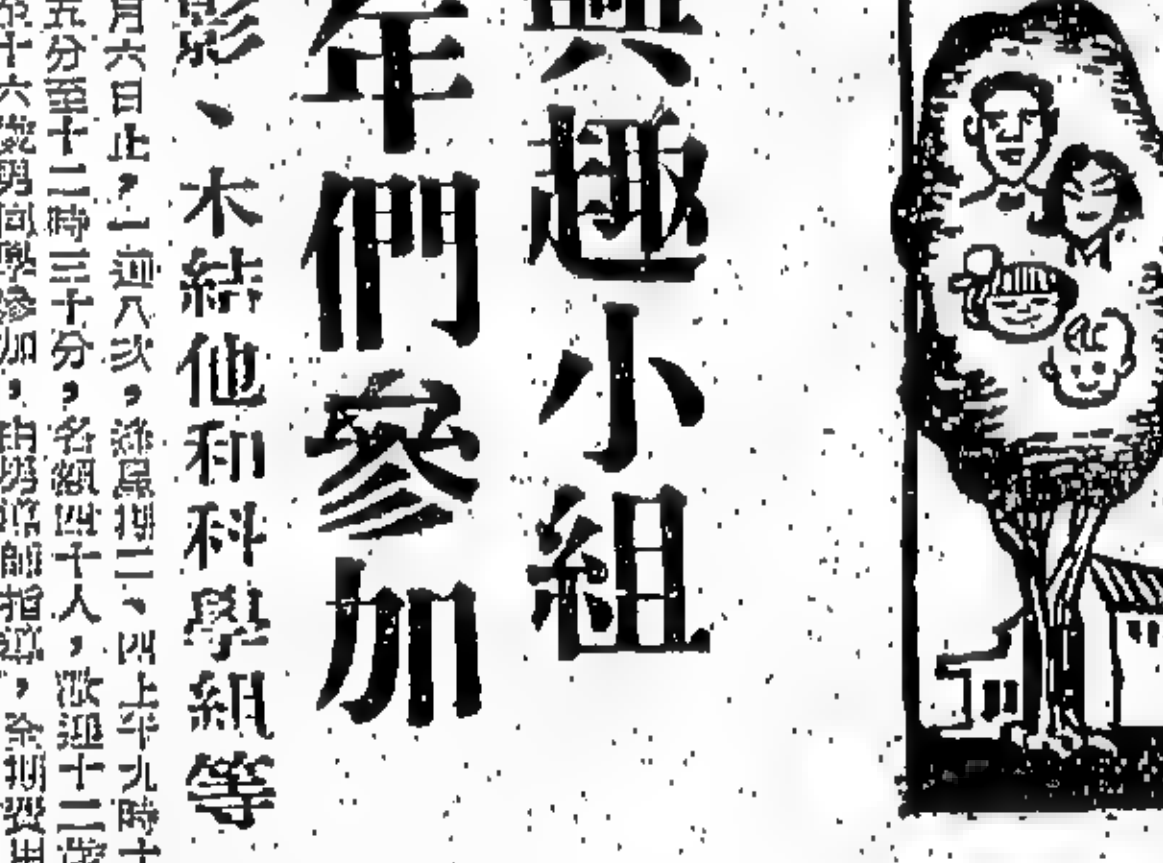 興趣小組
年們參加
影、木結他和科學組等
月六日止,一週八次,逢星期二、四上午九時十
五分至十二時三十分,名組四十人,歡迎十二歲
至十六歲男同學參加,由男導師指導,全期費用